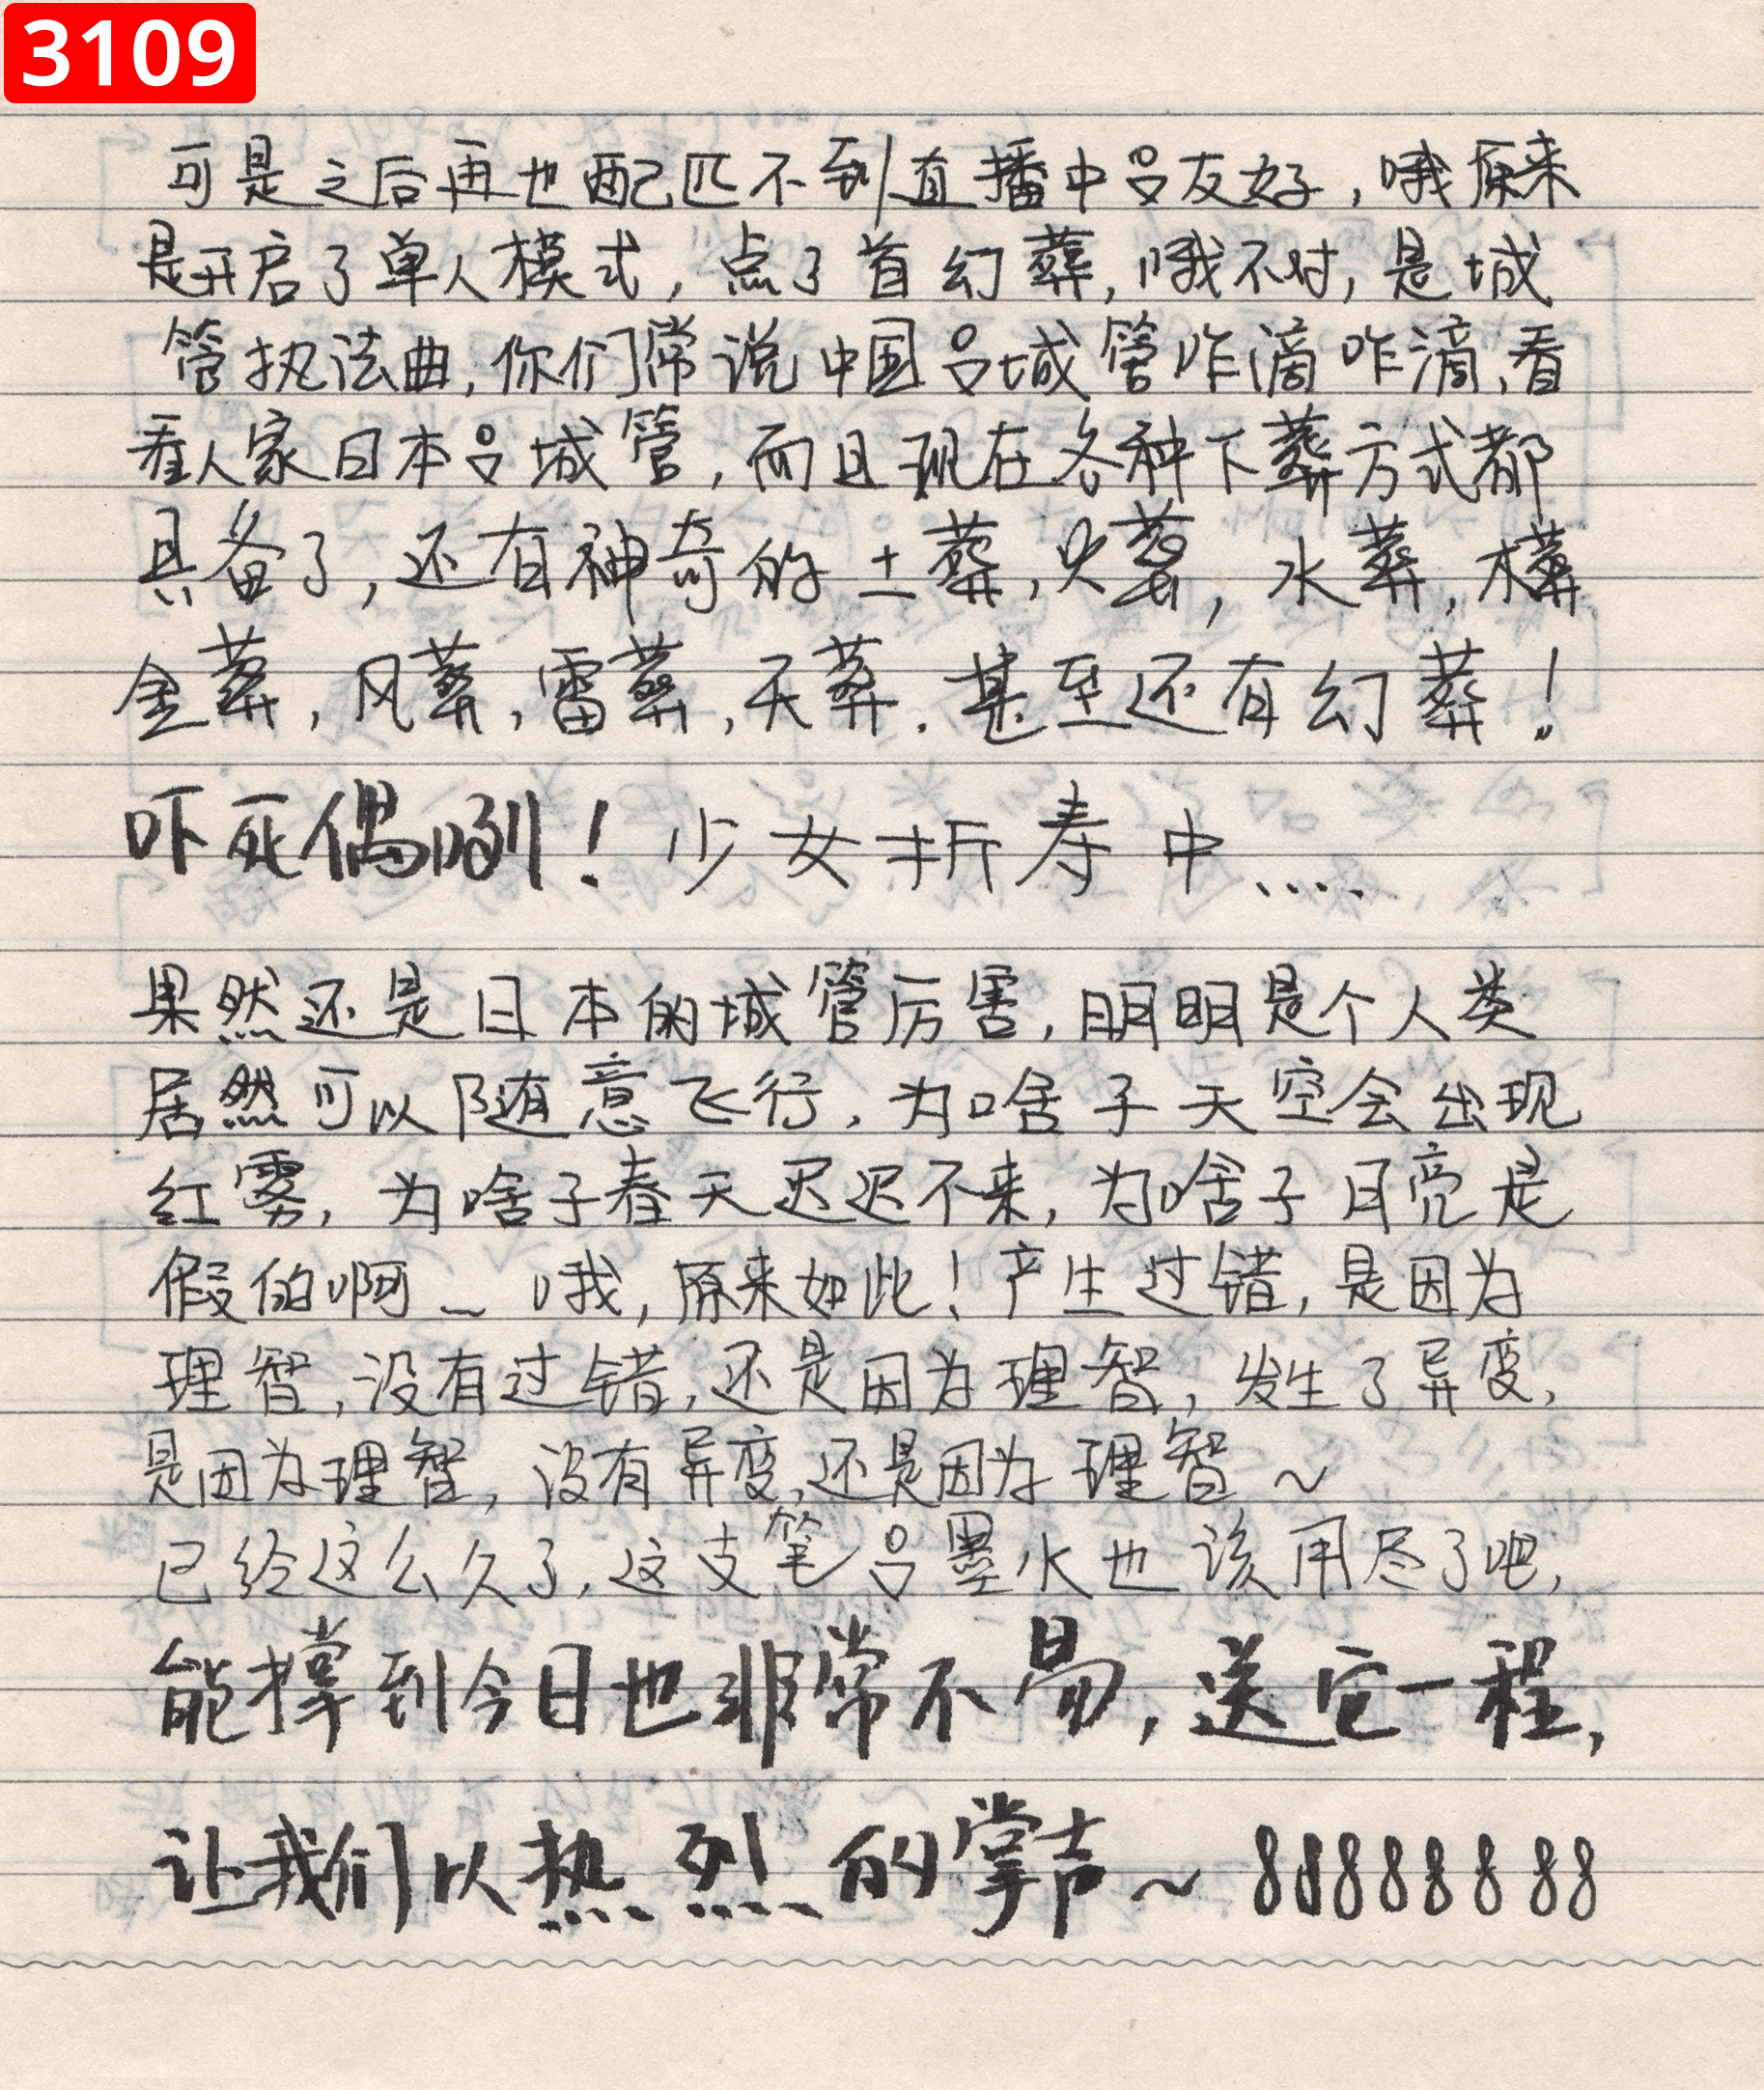 3109
可是之后再也配匹不到直播中吕友好，哦原来
是开启了单人模式，点了首幻葬，哦不对，是城
管执法曲，你们常说中国吕城管咋滴咋滴，看
看人家日本吕城管，而且现在各种下葬方式都
具备了，还有神奇的土葬，火葬，水葬，木葬
金葬，风葬，雷葬，天葬．甚至还有幻葬！
吓死偶咧！少女折寿中．．．．
果然还是日本的城管厉害，明明是个人类
居然可以随意飞行，为啥子天空会出现
红雾，为啥子春天迟迟不来，为啥子月亮是
假的啊～哦，原来如此！产生过错，是因为
理智，没有过错，还是因为理智，发生了异变，
是因为理智，没有异变，还是因为理智～
已经这么久了，这支笔吕墨水也该用尽了吧，
能撑到今日也非常不易，送它一程，
让我们以热烈的掌声～88888888